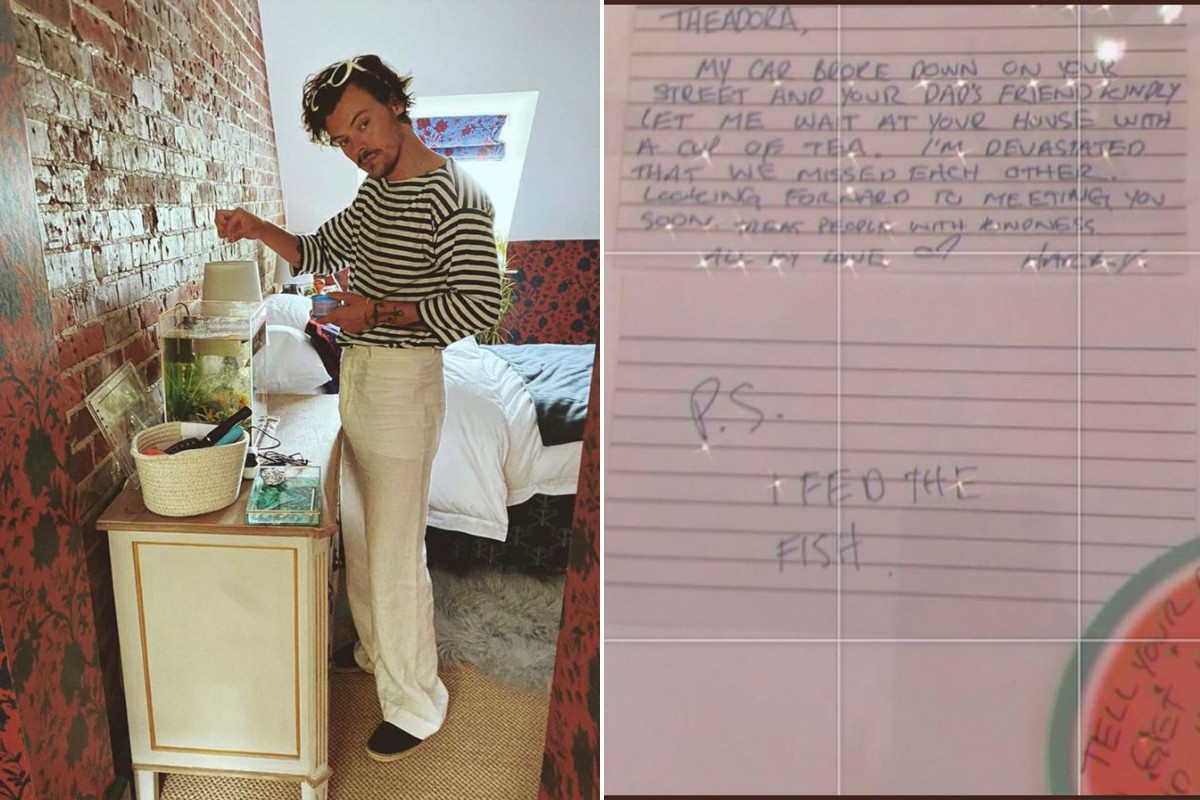 THEADORA,
MY CAR BROKE DOWN ON YOUR
STREET AND YOUR DAD'S FRIEND KINDLY
LET ME WAIT AT YOUR HOUSE WITH
A CUP OF TEA. I'M DEVASTATED
THAT WE MISSED EACH OTHER.
LOOKING FORWARD TO MEETING YOU
SOON. TREAT PEOPLE WITH KINDNESS
ALL MY LOVE
P.S.
I FED THE
FISH.
TELL YOUR
GET